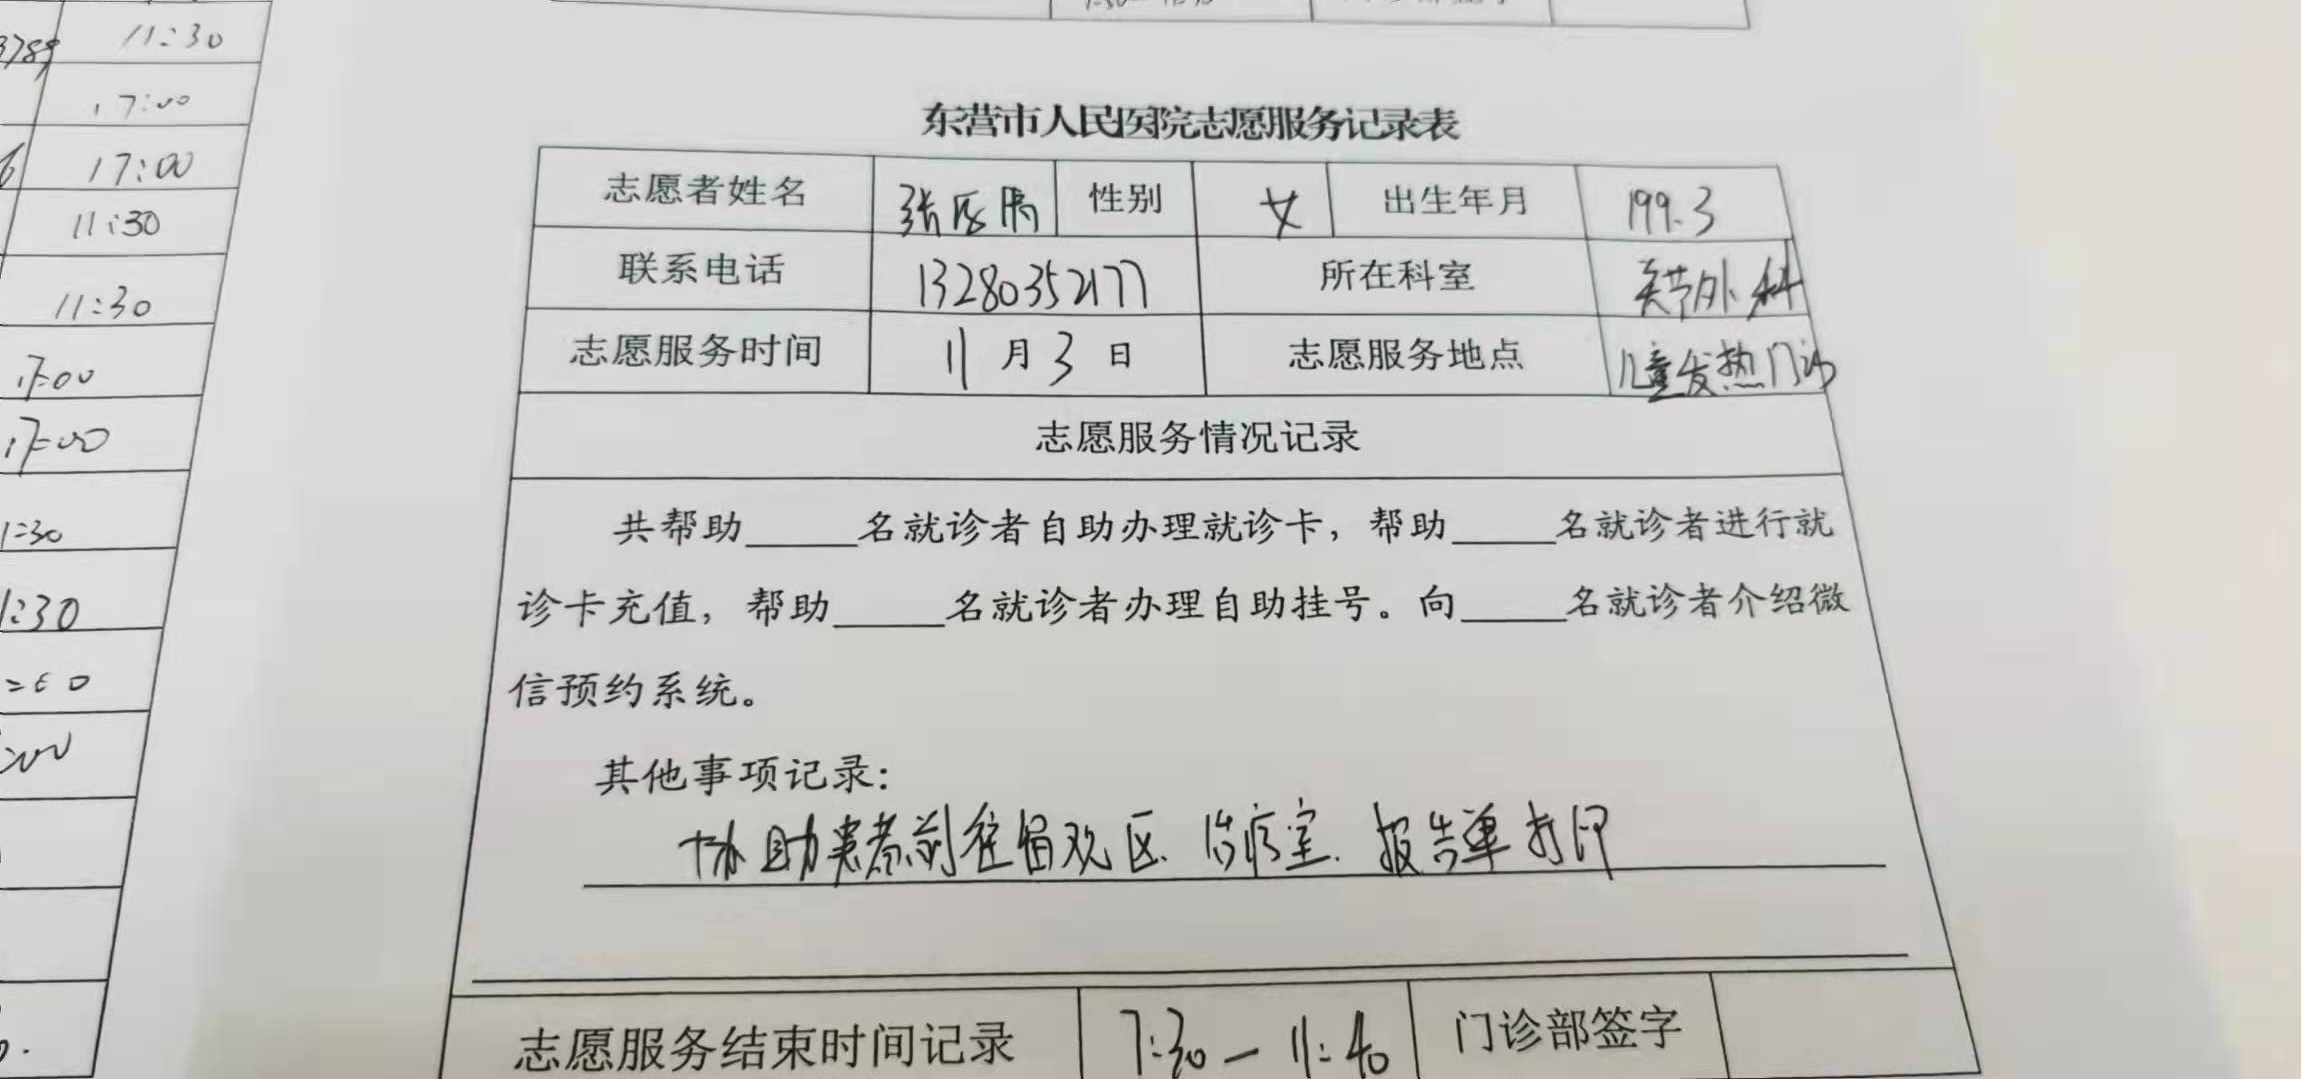 11:30
17:00
17:00
11:30
11:30
17:00
17:00
1:30
1:30
东营市人民医院志愿服务记录表
志愿者姓名 张 性别 女 出生年月 199.3
联系电话 13280352177 所在科室 关节外科
志愿服务时间 11月3日 志愿服务地点 儿童发热门诊
志愿服务情况记录
共帮助_____名就诊者自助办理就诊卡，帮助_____名就诊者进行就
诊卡充值，帮助_____名就诊者办理自助挂号。向_____名就诊者介绍微
信预约系统。
其他事项记录：
协助患者前往留观区、治疗室、报告单打印
志愿服务结束时间记录 7:30-11:40 门诊部签字